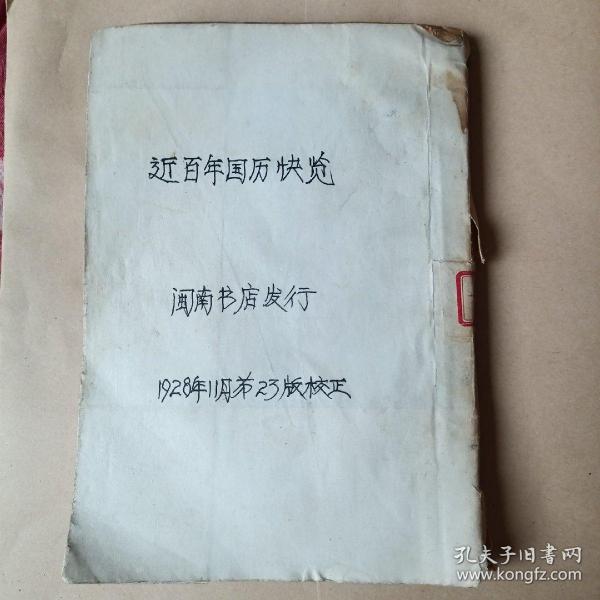 近百年国历快览
闽南书店发行
1928年11月第23版校正
孔夫子旧书网
www.kongfz.com